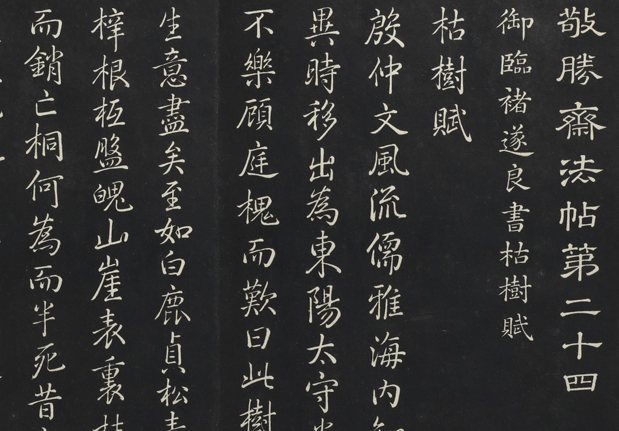 敬勝齋法帖第二十四
御臨褚遂良書枯樹賦
枯樹賦
殷仲文風流儒雅海内
異時移出為東陽太守
不樂顧庭槐而歎曰此樹
生意盡矣至如白鹿貞松
梓根柢盤魄山崖表裏
而銷亡桐何為而半死昔